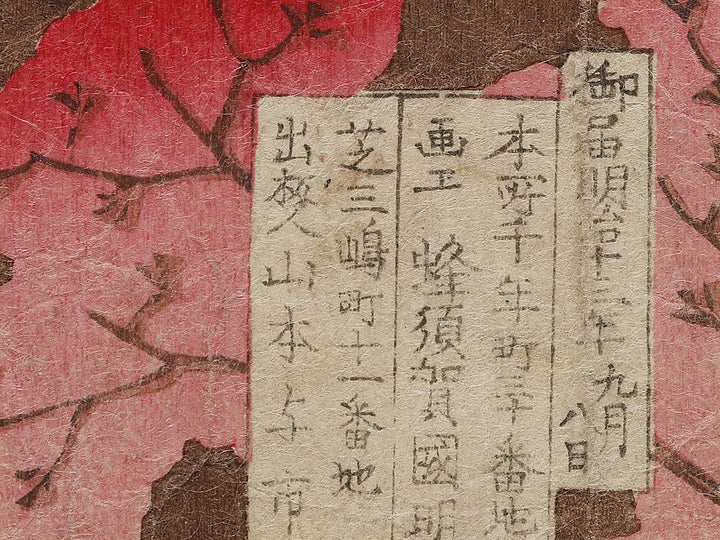 御届明治十三年九月八日
本所千年町三十番地
画工 蜂須賀國明
芝三嶋町十一番地
出板人山本与市